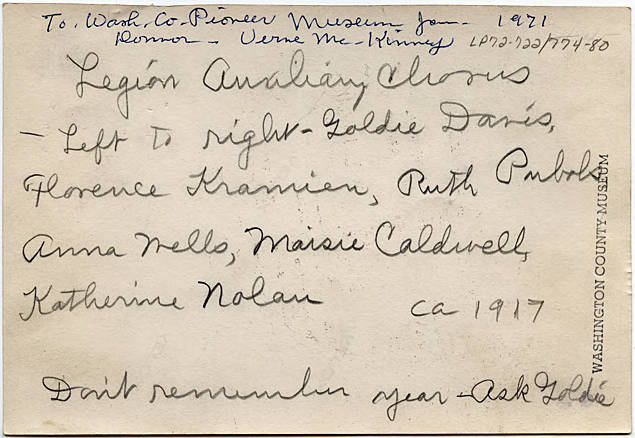 To. Wash. Co. Pioneer Museum Jan - 1971
Donnor - Verne Mc-Kinney LP72-722/774-80
Legion Auxiliary Chorus
- Left to right - Goldie Davis,
Florence Kramien, Ruth Pubols
Anna Wells, Maisie Caldwell,
Katherine Nolan ca 1917
Don't remember year - Ask Goldie
WASHINGTON COUNTY MUSEUM